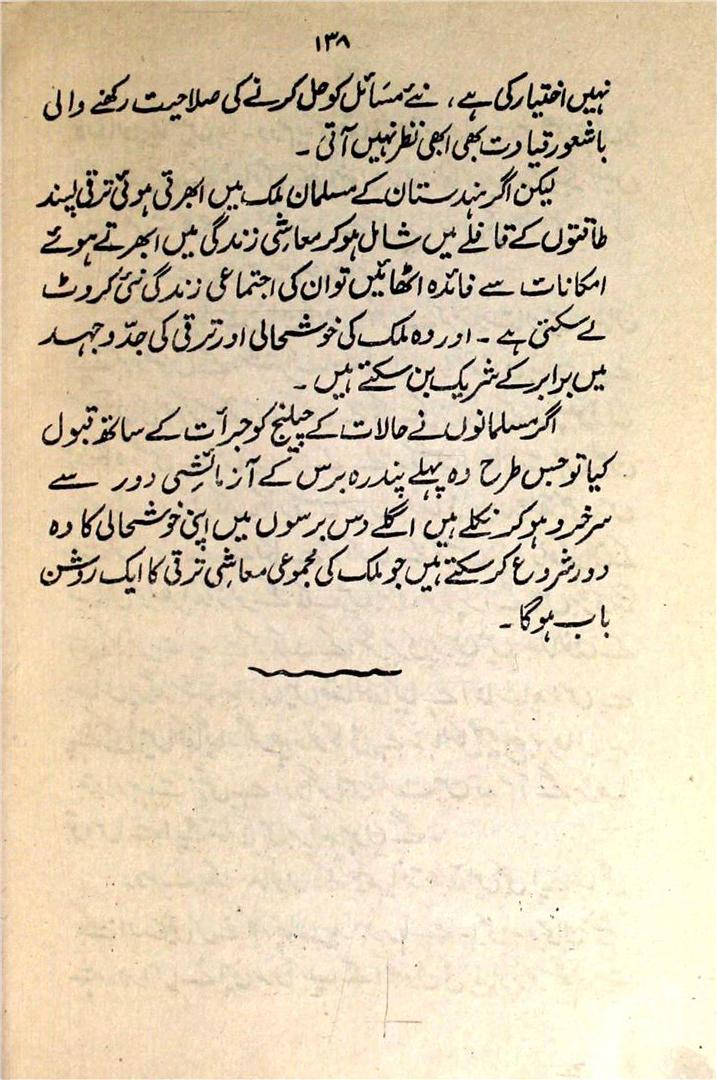 ۱۳۸
نہیں اختیار کی ہے، نئے مسائل کو حل کرنے کی صلاحیت رکھنے والی
باشعور قیادت بھی ابھی نظر نہیں آتی ۔
لیکن اگر ہندستان کے مسلمان ملک میں ابھرتی ہوئی ترقی پسند
طاقتوں کے قافلے میں شامل ہو کر معاشی زندگی میں ابھرتے ہوئے
امکانات سے فائدہ اٹھائیں تو ان کی اجتماعی زندگی نئی کروٹ
لے سکتی ہے ۔ اور وہ ملک کی خوشحالی اور ترقی کی جدّوجہد
میں برابر کے شریک بن سکتے ہیں ۔
اگر مسلمانوں نے حالات کے چیلنج کو جرأت کے ساتھ قبول
کیا تو جس طرح وہ پہلے پندرہ برس کے آزمائشی دور سے
سرخرو ہو کر نکلے ہیں اگلے دس برسوں میں اپنی خوشحالی کا وہ
دور شروع کر سکتے ہیں جو ملک کی مجموعی معاشی ترقی کا ایک روشن
باب ہوگا ۔